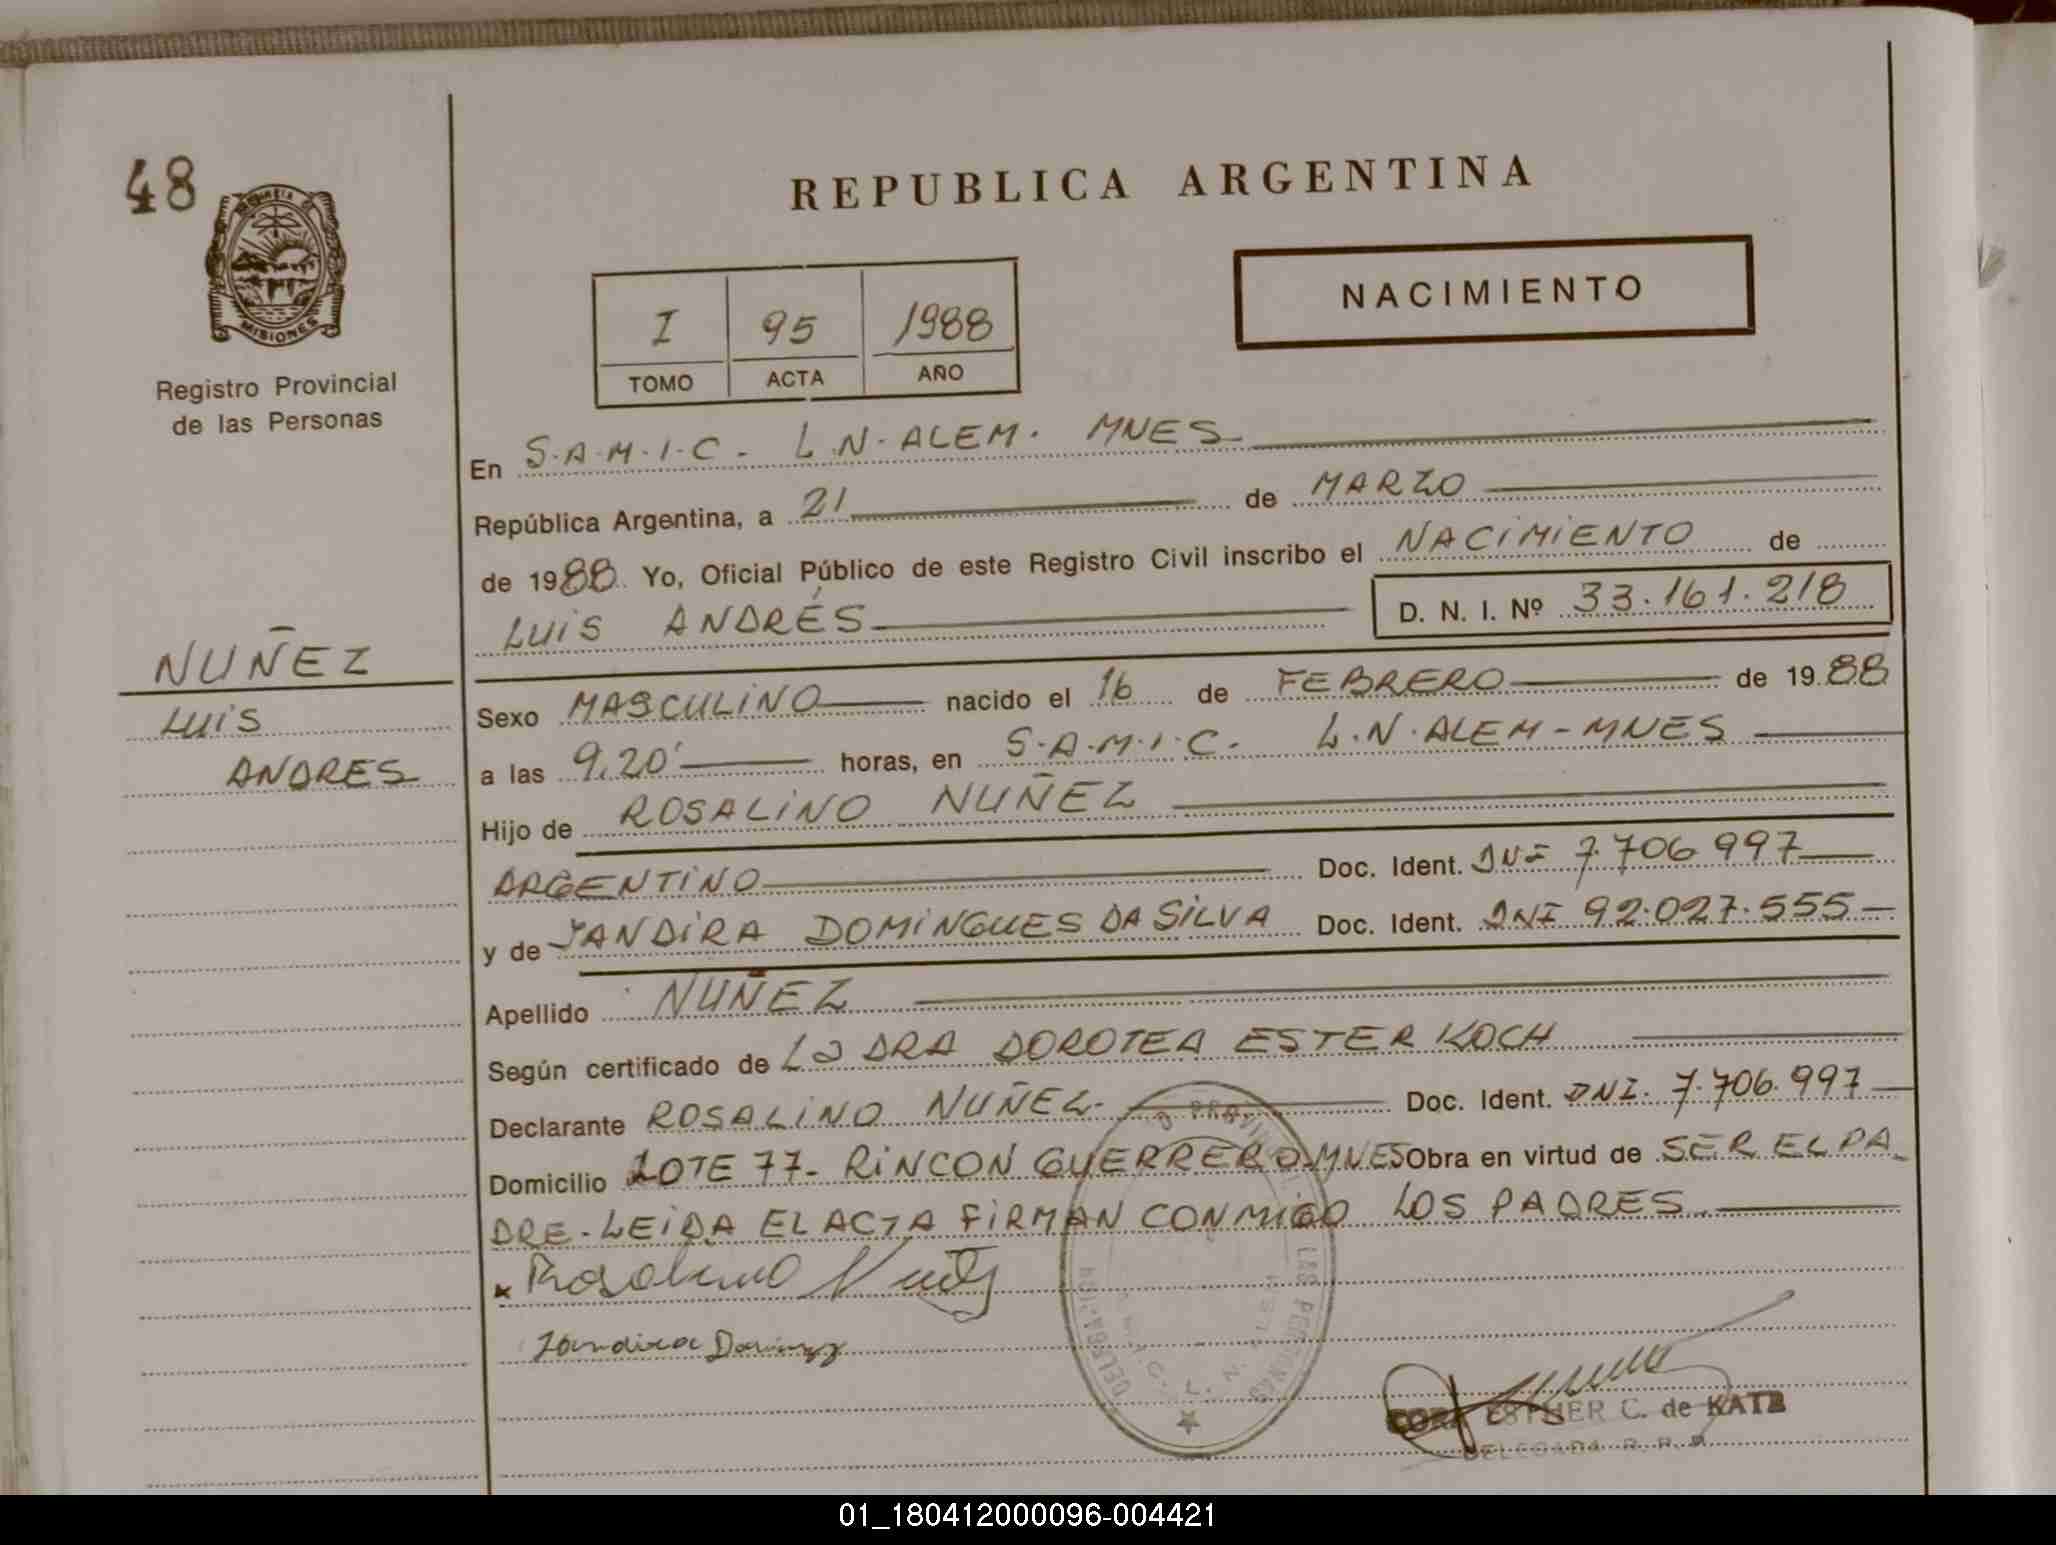 48
REPUBLICA ARGENTINA
MISIONES
Registro Provincial
de las Personas
NACIMIENTO
I 95 1988
TOMO ACTA AÑO
En S.A.M.I.C. L.N.ALEM. MNES
República Argentina, a 21 de MARZO
de 1988 Yo, Oficial Público de este Registro Civil inscribo el NACIMIENTO de
LUIS ANDRÉS D. N. I. Nº 33.161.218
NUÑEZ
LUIS
ANDRES
Sexo MASCULINO nacido el 16 de FEBRERO de 1988
a las 9,20' horas, en S.A.M.I.C. L.N.ALEM-MNES
Hijo de ROSALINO NUÑEZ
ARGENTINO Doc. Ident. DNI 7.706.997
y de JANDIRA DOMINGUES DA SILVA Doc. Ident. DNI 92.027.555
Apellido NUÑEZ
Según certificado de La DRA DOROTEA ESTER KOCH
Declarante ROSALINO NUÑEZ. Doc. Ident. DNI. 7.706.997
Domicilio LOTE 77- RINCON GUERRERO.MNES Obra en virtud de SER EL PA_
DRE.-LEIDA EL ACTA FIRMAN CONMIGO LOS PADRES.
x Rosalino Nuñez
Jandira
LAS PERSONAS
ESTHER C. de KATZ
DELEGADA R. P. P.
01_180412000096-004421